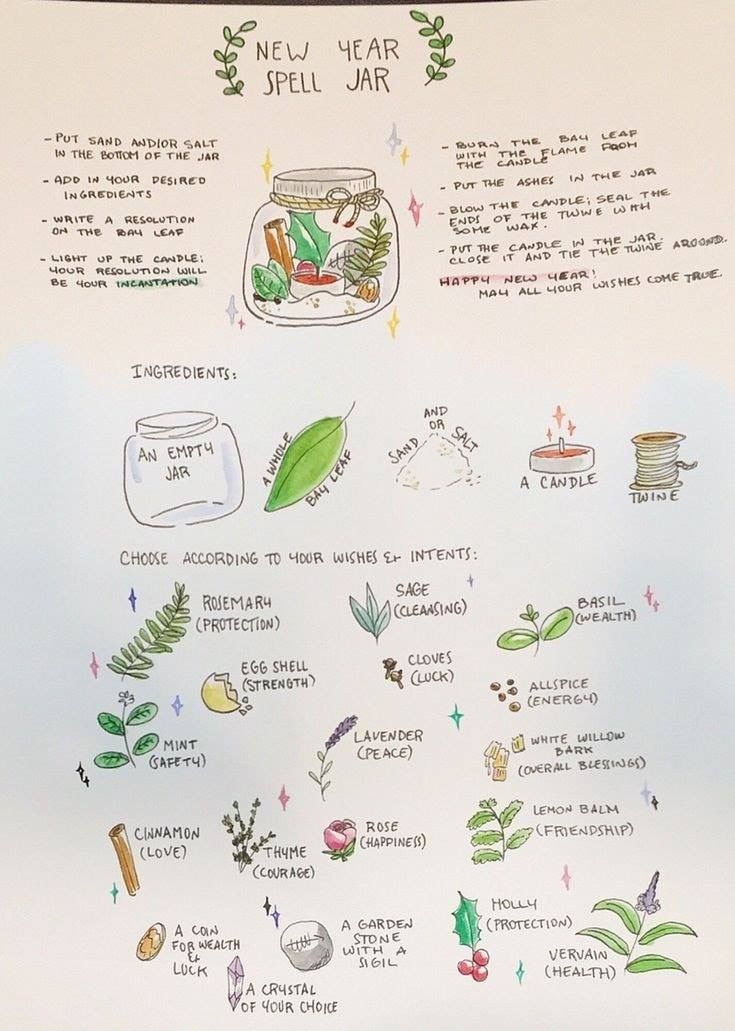 NEW YEAR
SPELL JAR
- PUT SAND AND/OR SALT
IN THE BOTTOM OF THE JAR
- ADD IN YOUR DESIRED
INGREDIENTS
- WRITE A RESOLUTION
ON THE BAY LEAF
- LIGHT UP THE CANDLE;
YOUR RESOLUTION WILL
BE YOUR INCANTATION
- BURN THE BAY LEAF
WITH THE FLAME FROM
THE CANDLE
- PUT THE ASHES IN THE JAR
- BLOW THE CANDLE; SEAL THE
ENDS OF THE TWINE WITH
SOME WAX.
- PUT THE CANDLE IN THE JAR.
CLOSE IT AND TIE THE TWINE AROUND.
HAPPY NEW YEAR!
MAY ALL YOUR WISHES COME TRUE.
INGREDIENTS:
AN EMPTY
JAR
A WHOLE
BAY LEAF
SAND
AND
OR
SALT
A CANDLE
TWINE
CHOOSE ACCORDING TO YOUR WISHES & INTENTS:
ROSEMARY
(PROTECTION)
SAGE
(CLEANSING)
BASIL
(WEALTH)
EGG SHELL
(STRENGTH)
CLOVES
(LUCK)
ALLSPICE
(ENERGY)
MINT
(SAFETY)
LAVENDER
(PEACE)
WHITE WILLOW
BARK
(OVERALL BLESSINGS)
CINNAMON
(LOVE)
THYME
(COURAGE)
ROSE
(HAPPINESS)
LEMON BALM
(FRIENDSHIP)
A COIN
FOR WEALTH
&
LUCK
A GARDEN
STONE
WITH A
SIGIL
HOLLY
(PROTECTION)
VERVAIN
(HEALTH)
A CRYSTAL
OF YOUR CHOICE